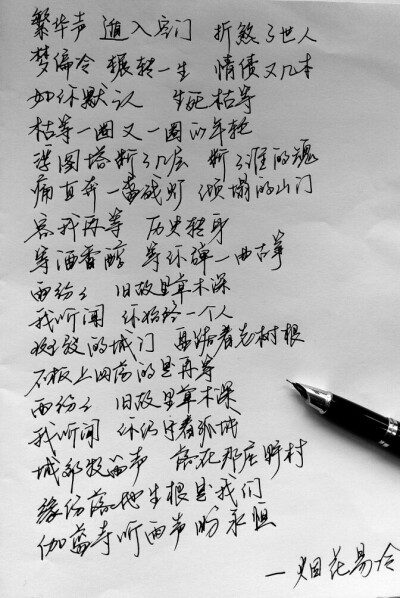 繁华声 遁入空门 折煞了世人
梦偏冷 辗转一生 情债又几本
如你默认 生死枯等
枯等一圈又一圈的年轮
浮图塔断了几层 断了谁的魂
痛直奔一盏残灯 倾塌的山门
容我再等 历史转身
等酒香醇 等你弹一曲古筝
雨纷纷 旧故里草木深
我听闻 你始终一个人
斑驳的城门 盘踞着老树根
石板上回荡的是再等
雨纷纷 旧故里草木深
我听闻 你仍守着孤城
城郊牧笛声 落在那座野村
缘份落地生根是我们
伽蓝寺听雨声盼永恒
—烟花易冷